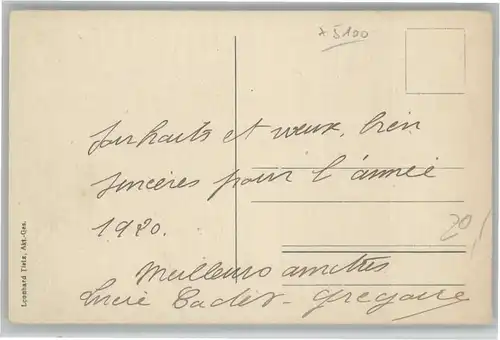 * 5100
Souhaits et vœux, bien
sincères pour l'année
1920.
Meilleurs amitiés
Lucie Cader - Gregoire
20
Leonhard Tietz, Akt.-Ges.